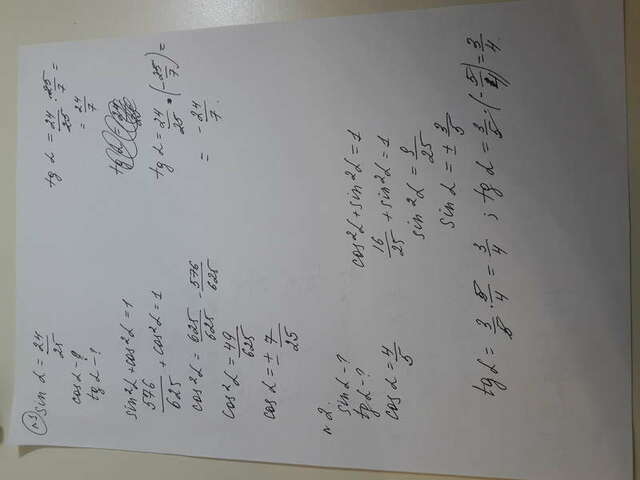 №1 sin α = 24/25
cos α - ?
tg α - ?
sin²α + cos²α = 1
576/625 + cos²α = 1
cos²α = 625/625 - 576/625
cos²α = 49/625
cos α = ± 7/25
tg α = 24/25 · 25/7 =
= 24/7
tg α = 24/25 · (-25/7) =
= -24/7
№2.
sin α - ?
tg α - ?
cos α = 4/5
cos²α + sin²α = 1
16/25 + sin²α = 1
sin²α = 9/25
sin α = ± 3/5
tg α = 3/5 · 5/4 = 3/4 ; tg α = 3/5 · (-5/4) = 3/4